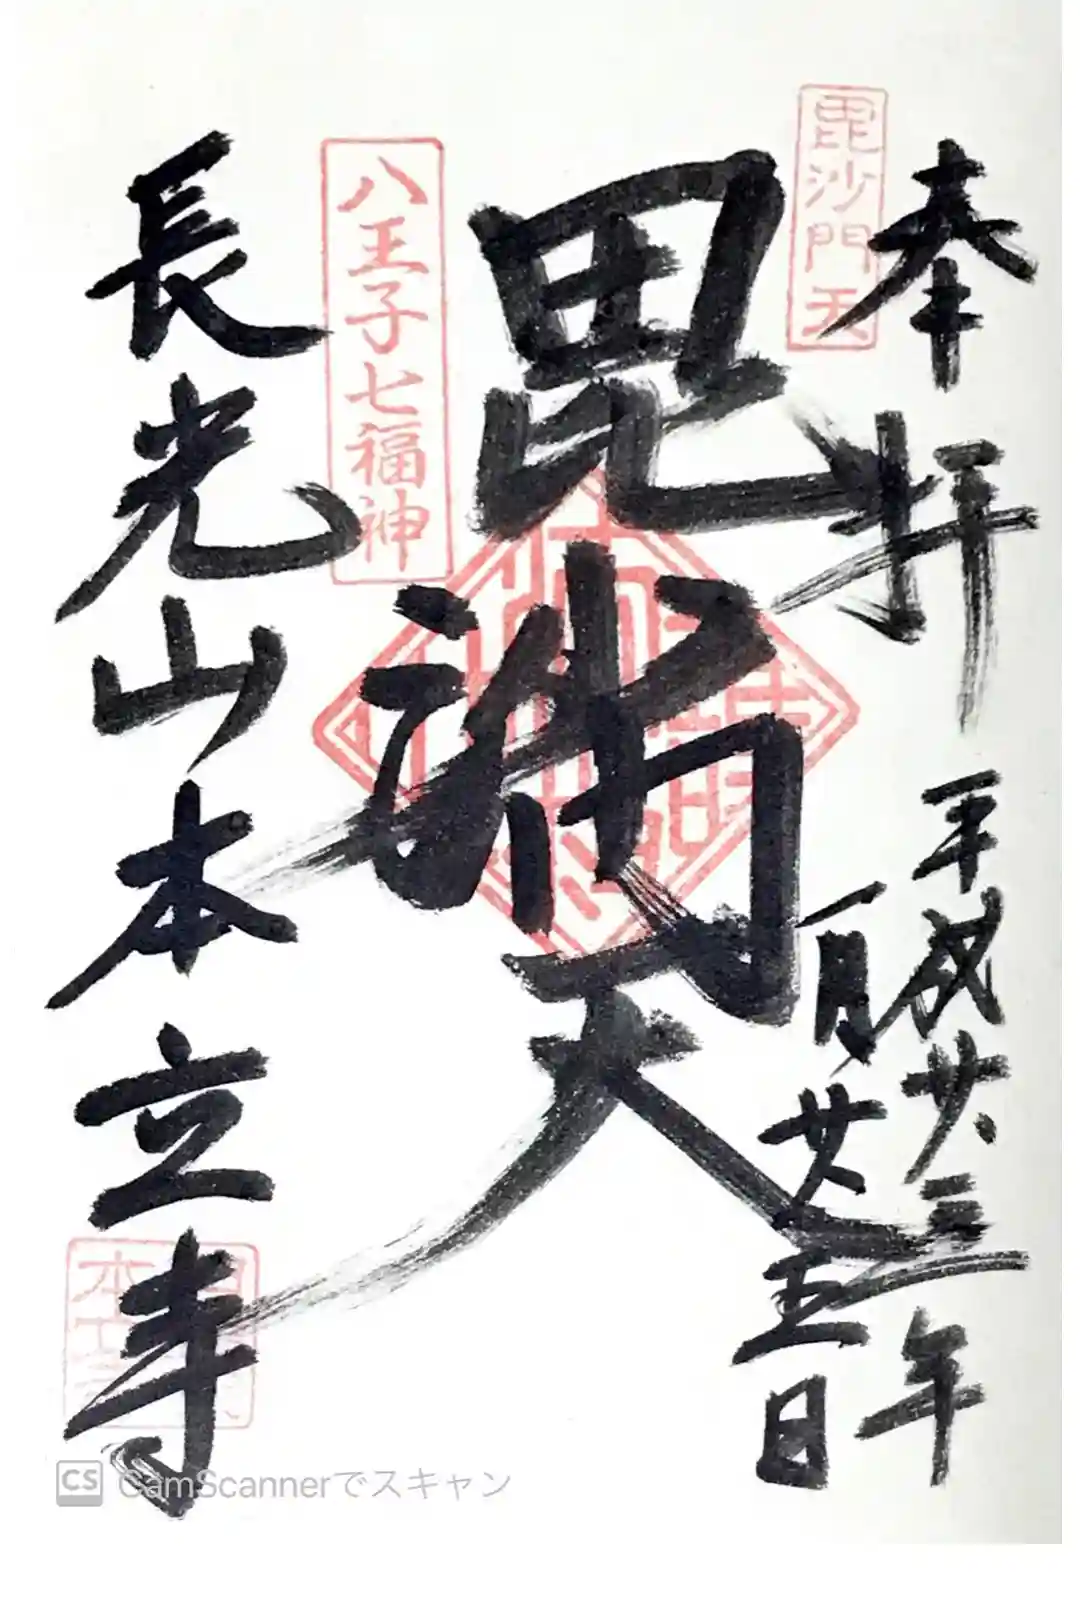 奉拝
平成廿三年
一月廿五日
毘沙門天
毘沙門天
八王子七福神
長光山本立寺
CS CamScannerでスキャン